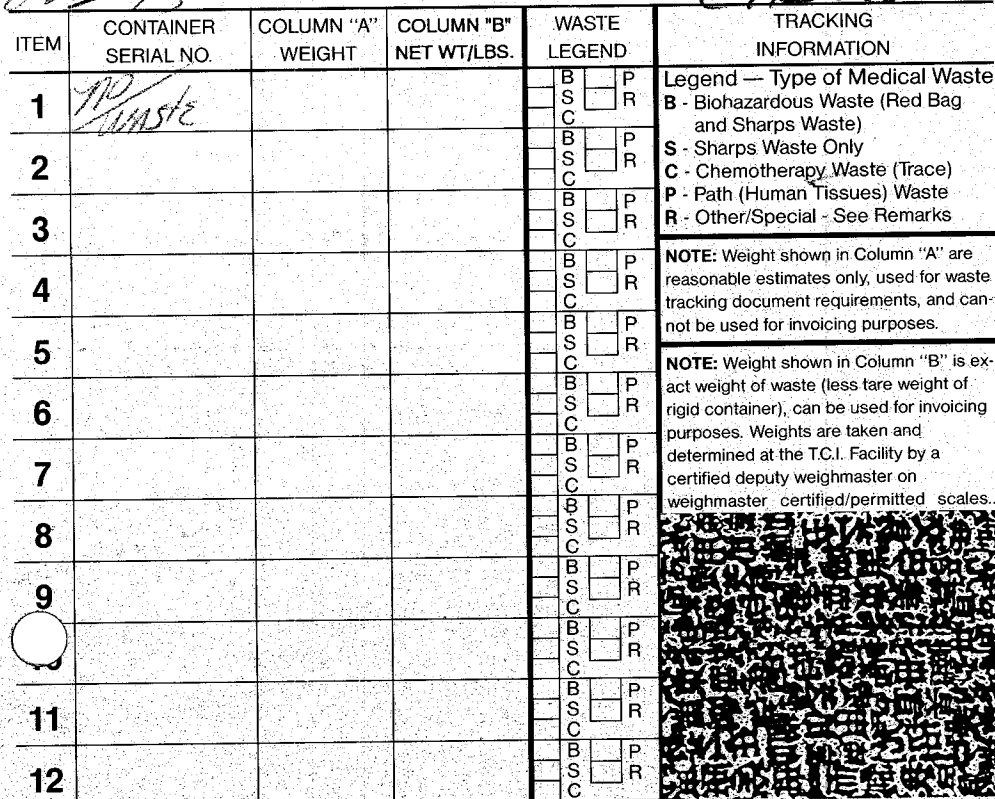 ITEM
CONTAINER
SERIAL NO.
COLUMN "A"
WEIGHT
COLUMN "B"
NET WT/LBS.
WASTE
LEGEND
TRACKING
INFORMATION
1 no waste B S C P R
2 B S C P R
3 B S C P R
4 B S C P R
5 B S C P R
6 B S C P R
7 B S C P R
8 B S C P R
9 B S C P R
B S C P R
11 B S C P R
12 B S C P R
Legend — Type of Medical Waste
B - Biohazardous Waste (Red Bag
and Sharps Waste)
S - Sharps Waste Only
C - Chemotherapy Waste (Trace)
P - Path (Human Tissues) Waste
R - Other/Special - See Remarks
NOTE: Weight shown in Column "A" are
reasonable estimates only, used for waste
tracking document requirements, and can-
not be used for invoicing purposes.
NOTE: Weight shown in Column "B" is ex-
act weight of waste (less tare weight of
rigid container), can be used for invoicing
purposes. Weights are taken and
determined at the T.C.I. Facility by a
certified deputy weighmaster on
weighmaster certified/permitted scales..